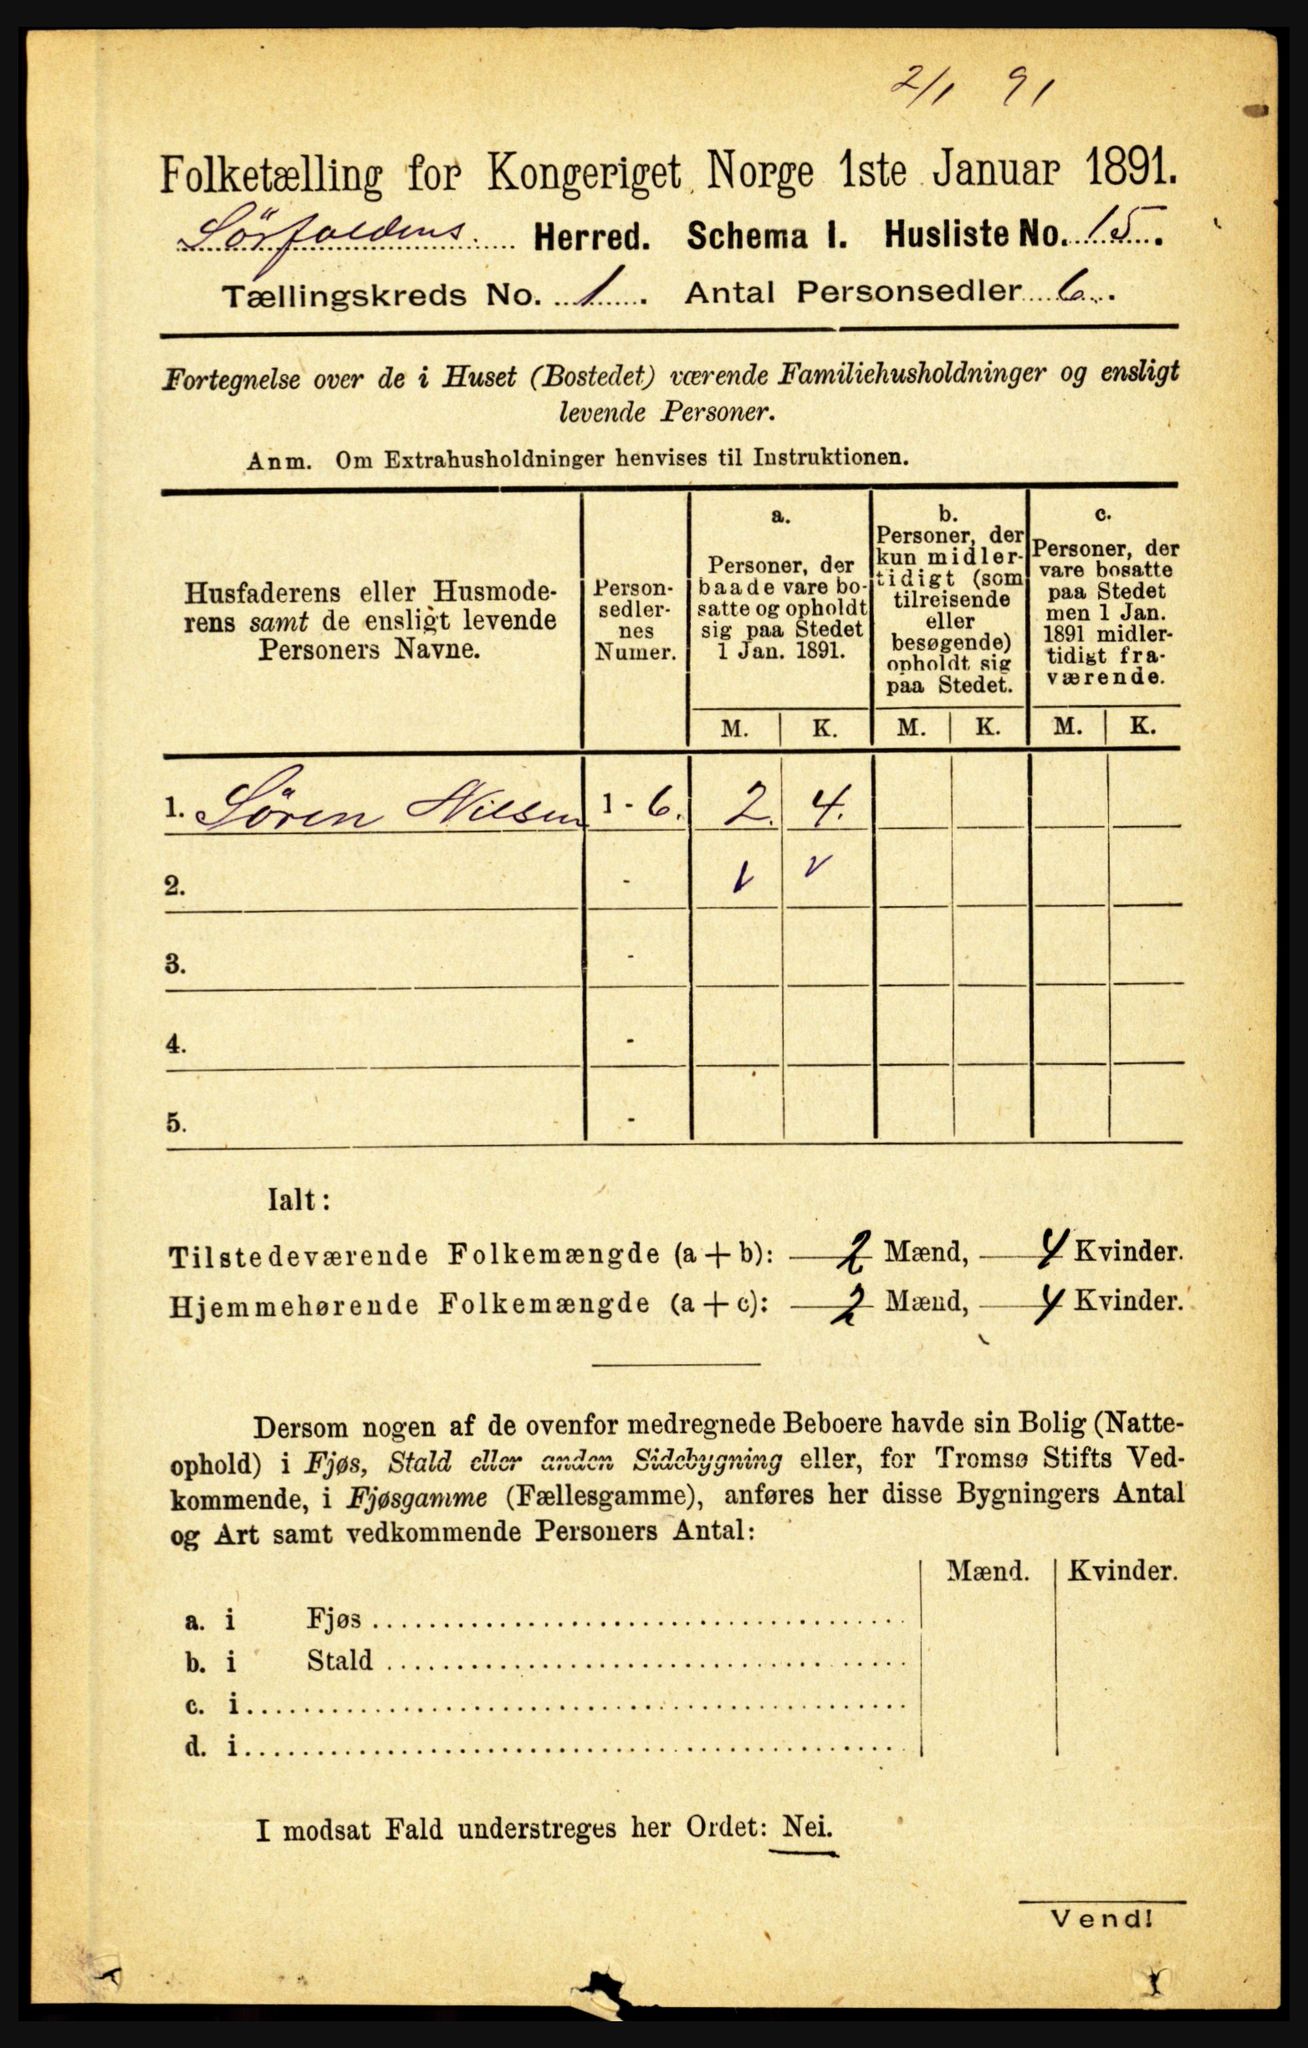 2/1 91
Folketælling for Kongeriget Norge 1ste Januar 1891.
Sörfoldens Herred. Schema I. Husliste No. 15.
Tællingskreds No. 1. Antal Personsedler 6.
Fortegnelse over de i Huset (Bostedet) værende Familiehusholdninger og ensligt
levende Personer.
Anm. Om Extrahusholdninger henvises til Instruktionen.
Husfaderens eller Husmode-
rens samt de ensligt levende
Personers Navne.
Person-
sedler-
nes
Numer.
a.
Personer, der
baade vare bo-
satte og opholdt
sig paa Stedet
1 Jan. 1891.
b.
Personer, der
kun midler-
tidigt (som
tilreisende
eller
besøgende)
opholdt sig
paa Stedet.
c.
Personer, der
vare bosatte
paa Stedet
men 1 Jan.
1891 midler-
tidigt fra-
værende.
M. K. M. K. M. K.
1. Sören Nilsen 1 - 6. 2. 4.
2. -
3. -
4. -
5. -
Ialt:
Tilstedeværende Folkemængde (a + b): 2 Mænd, 4 Kvinder.
Hjemmehørende Folkemængde (a + c): 2 Mænd, 4 Kvinder.
Dersom nogen af de ovenfor medregnede Beboere havde sin Bolig (Natte-
ophold) i Fjøs, Stald eller anden Sidebygning eller, for Tromsø Stifts Ved-
kommende, i Fjøsgamme (Fællesgamme), anføres her disse Bygningers Antal
og Art samt vedkommende Personers Antal:
Mænd. Kvinder.
a. i Fjøs
b. i Stald
c. i
d. i
I modsat Fald understreges her Ordet: Nei.
Vend!